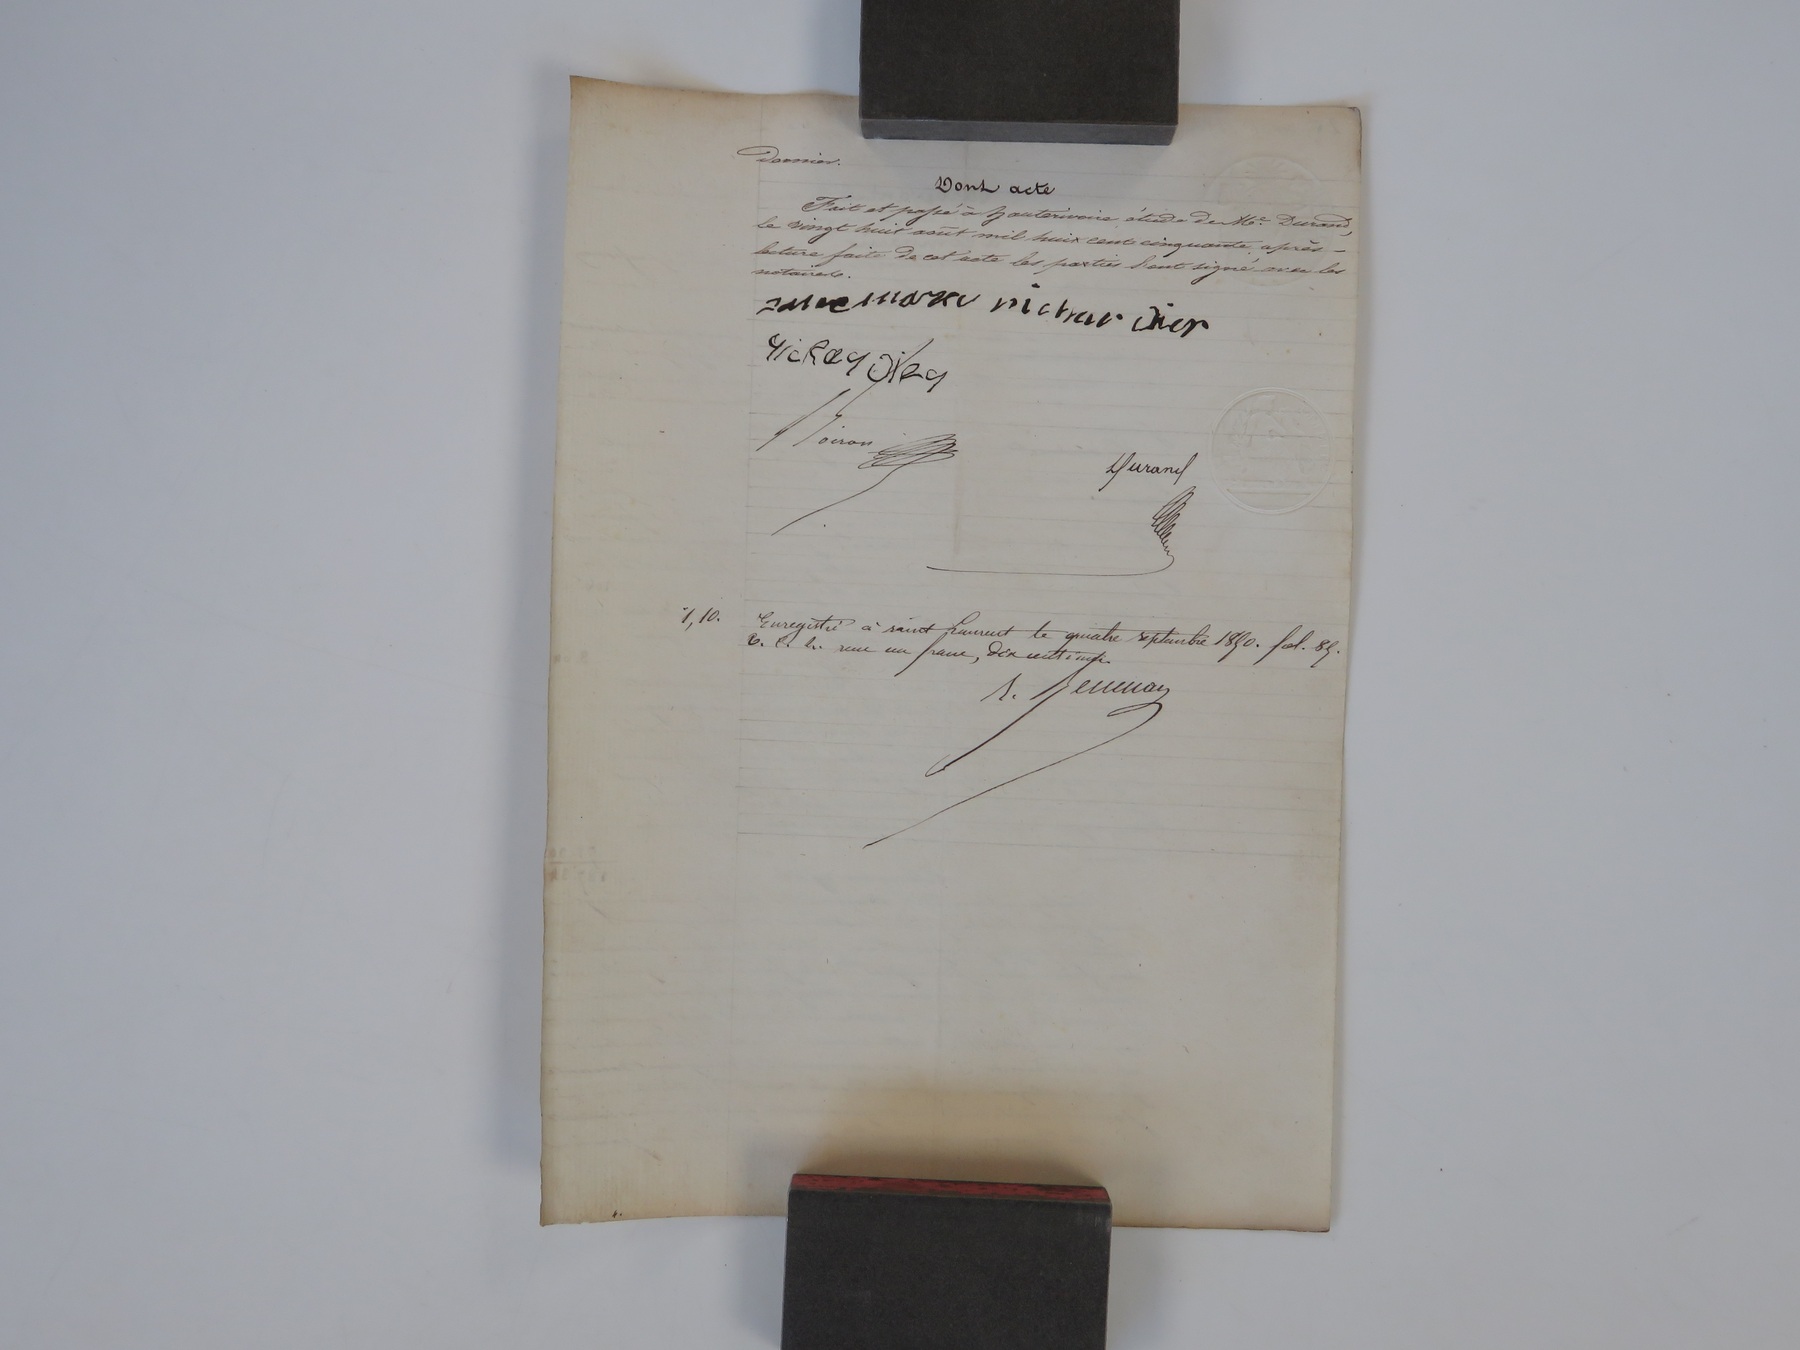 Dernier.
Dont acte
Fait et passé à hauterivoire étude de Me. Durand,
le vingt huit août mil huit cent cinquante, après
lecture faite de cet acte les parties l'ont signé avec les
notaires.
victeur Dier
Dier
Durand
1,10. Enregistré à saint Laurent le quatre septembre 1850. fol. 89.
C. reçu un franc, dix centimes.